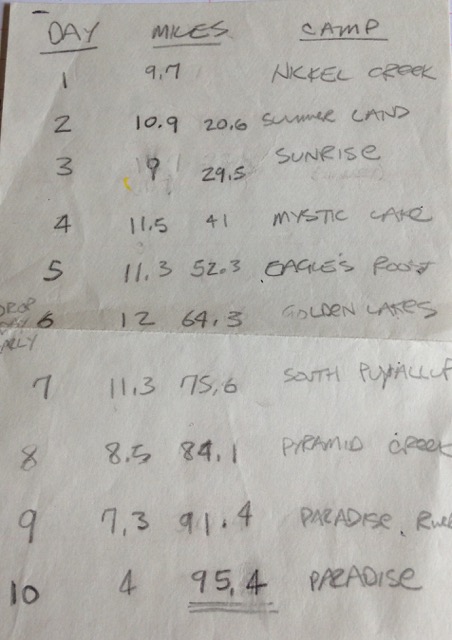 DAY MILES CAMP
1 9.7 NICKEL CREEK
2 10.9 20.6 SUMMER LAND
3 9 29.5 SUNRISE
4 11.5 41 MYSTIC LAKE
5 11.3 52.3 EAGLE'S ROOST
DROP
6 12 64.3 GOLDEN LAKES
7 11.3 75.6 SOUTH PUYALLUP
8 8.5 84.1 PYRAMID CREEK
9 7.3 91.4 PARADISE
10 4 95.4 PARADISE